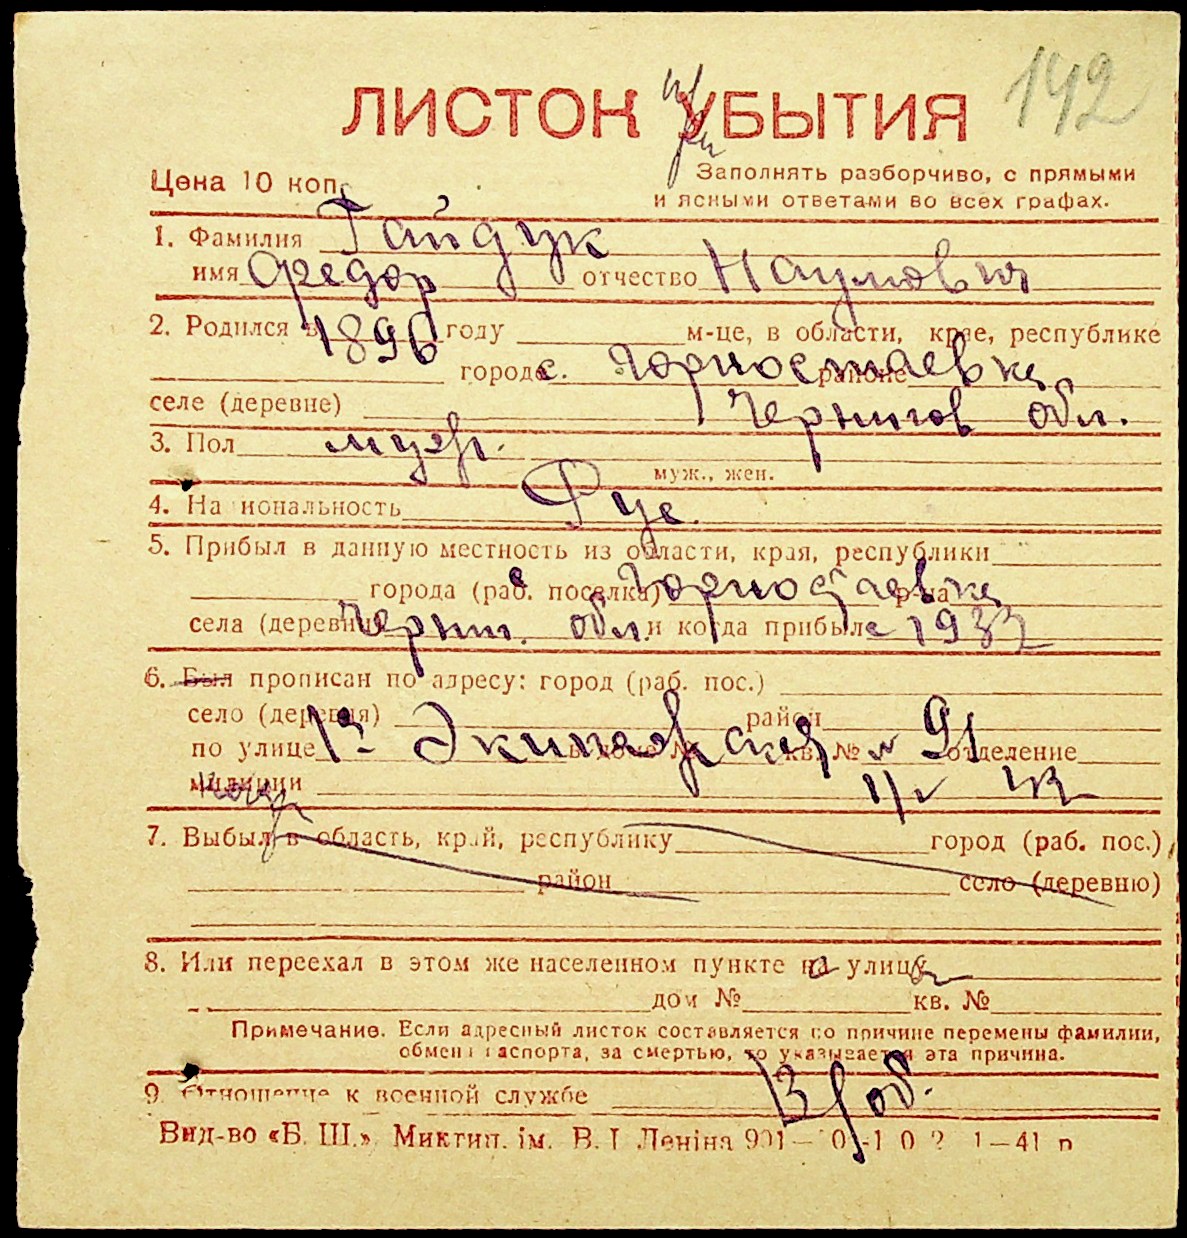 142
ЛИСТОК УБЫТИЯ
при
Цена 10 коп.
Заполнять разборчиво, с прямыми
и ясными ответами во всех графах.
1. Фамилия Гайдук
имя Федор отчество Наумович
2. Родился в 1896 году м-це, в области, крае, республике
городе с. Горностаевка районе
селе (деревне) Чернигов обл.
3. Пол муж.
муж., жен.
4. Национальность Рус.
5. Прибыл в данную местность из области, края, республики
города (раб. поселка) с Горностаевка р-на
села (деревни) Черниг. обл. и когда прибыл с 1933
6. Был прописан по адресу: город (раб. пос.)
село (деревня) район
по улице 1я Экипажская в доме № кв. № 91 отделение
милиции
7. Выбыл в область, край, республику город (раб. пос.)
район село (деревню)
8. Или переехал в этом же населенном пункте на улицу
дом № кв. №
Примечание. Если адресный листок составляется по причине перемены фамилии,
обмена паспорта, за смертью, то указывается эта причина.
9. Отношение к военной службе В/об.
Вид-во «Б. Ш.». Миктип. ім. В. І. Леніна